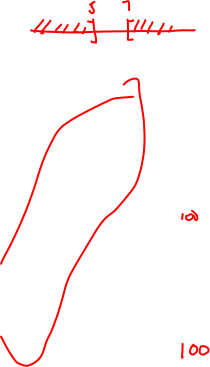 5 7
10
100